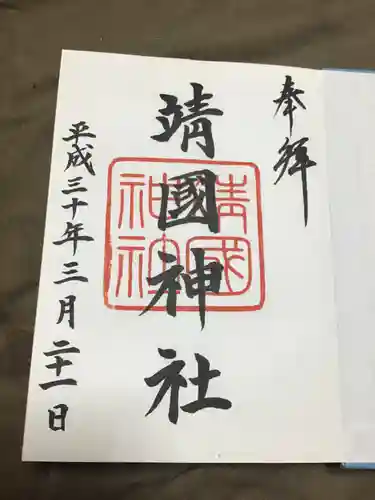 奉拝
靖國神社
靖國
神社
平成三十年三月二十一日